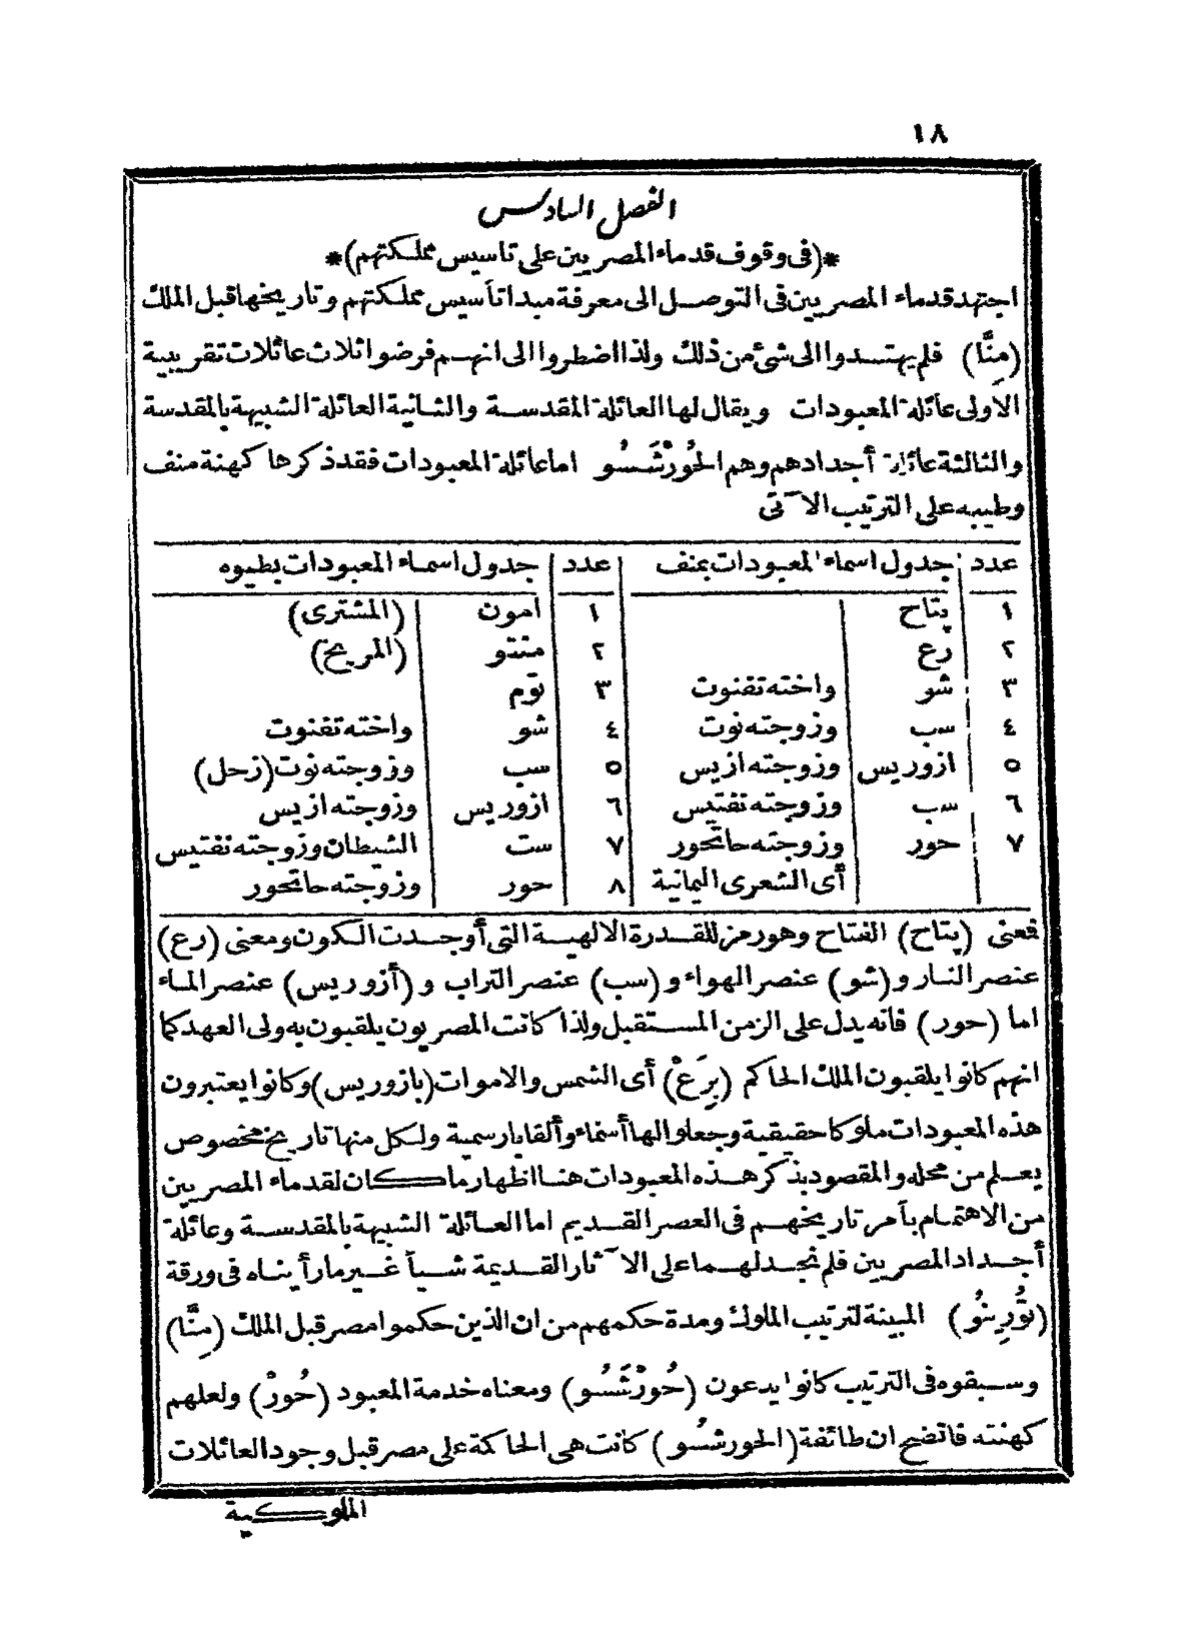 ١٨
الفصل السادس
*(فى وقوف قدماء المصريين على تاسيس مملكتهم)*
اجتهد قدماء المصريين فى التوصل الى معرفة مبدا تأسيس مملكتهم وتاريخها قبل الملك
(مِنَّا) فلم يهتدوا الى شئ من ذلك ولذا اضطروا الى انهم فرضوا ثلاث عائلات تقريبية
الاولى عائلة المعبودات ويقال لها العائلة المقدسة والثانية العائلة الشبيهة بالمقدسة
والثالثة عائلة أجدادهم وهم الحُورْشَسُو اما عائلة المعبودات فقد ذكرها كهنة منف
وطيبه على الترتيب الآتى
عدد | جدول اسماء المعبودات بمنف | عدد | جدول اسماء المعبودات بطيوه
١ | پتاح | | ١ | امون | (المشترى)
٢ | رع | | ٢ | منتو | (المريخ)
٣ | شو | واخته تفنوت | ٣ | توم |
٤ | سب | وزوجته نوت | ٤ | شو | واخته تفنوت
٥ | ازوريس | وزوجته ازيس | ٥ | سب | وزوجته نوت (زحل)
٦ | سب | وزوجته نفتيس | ٦ | ازوريس | وزوجته ازيس
٧ | حور | وزوجته حاتحور | ٧ | ست | الشيطان وزوجته نفتيس
| | أى الشعرى اليمانية | ٨ | حور | وزوجته حاتحور
فمعنى (پتاح) الفتاح وهو رمز للقدرة الالهية التى أوجدت الكون ومعنى (رع)
عنصر النار و (شو) عنصر الهواء و (سب) عنصر التراب و (أزوريس) عنصر الماء
اما (حور) فانه يدل على الزمن المستقبل ولذا كانت المصريون يلقبون به ولى العهد كما
انهم كانوا يلقبون الملك الحاكم (بِرَعْ) أى الشمس والاموات (بازوريس) وكانوا يعتبرون
هذه المعبودات ملوكا حقيقية وجعلوا لها أسماء وألقابا رسمية ولكل منها تاريخ مخصوص
يعلم من محله والمقصود بذكر هذه المعبودات هنا اظهار ما كان لقدماء المصريين
من الاهتمام بأمر تاريخهم فى العصر القديم اما العائلة الشبيهة بالمقدسة وعائلة
أجداد المصريين فلم نجد لهما على الآثار القديمة شيأ غير ما رأيناه فى ورقة
(تُورِينُو) المبينة لترتيب الملوك ومدة حكمهم من ان الذين حكموا مصر قبل الملك (مِنَّا)
وسبقوه فى الترتيب كانوا يدعون (حُورْشَسُو) ومعناه خدمة المعبود (حُورْ) ولعلهم
كهنته فاتضح ان طائفة (الحورشسُو) كانت هى الحاكمة على مصر قبل وجود العائلات
الملوكية